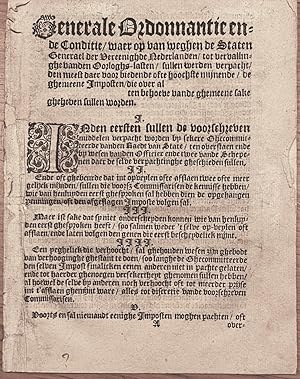 Generale Ordonnantie en-
de Conditie / waer op van weghen de Staten
Generael der Vereenighde Nederlanden / tot vervallin-
ghe vanden Oorloghs-lasten / sullen werden verpacht /
den meest daer voor biedende ofte hoochste mijnende / de
ghemeene Imposten / die over al
ten behoeve vande ghemeene sake
gheheven sullen worden.
I.
INden eersten sullen de voorschreven
middelen verpacht worden by sekere Ghecommit-
teerde vanden Raedt van State / ten overstaen ende
by wesen vanden Officier ende twee vande Schepe-
nen daer de selve verpachtinghe gheschieden sullen.
II.
Ende oft ghebeurde dat int opveylen ofte afslaen twee ofte meer
gelijck mijnden / sullen die voorsz Commissarisen de kennisse hebben /
wie van henluyden eerst ghesproken sal hebben dien de opgehangen
penningen / oft den afgeslagen Imposte volgen sal.
III.
Maer ist sake dat sy niet onderscheyden konnen wie van henluy-
den eerst ghesproken heeft / soo salmen weder 't selve op-veylen oft
afslaen / ende laten volgen den genen die eerst bescheydelick mijnt.
IIII.
Een yeghelick die verhoocht / sal ghehouden wesen zijn ghebodt
van verhooginghe ghestant te doen / soo langhe de Ghecommitteerde
den selven Impost finalicken eenen anderen niet in pachte gelaten /
ende tot haerder ghenoegen versekertheyt ghenomen sullen hebben /
al hoewel de selve by anderen noch verhoocht oft tot meerder prijse
int t'afslaen ghemijnt ware / alles tot discretie vande voorschreven
Commissarisen.
V.
Voorts en sal niemandt eenighe Imposten moghen pachten / oft
A over-